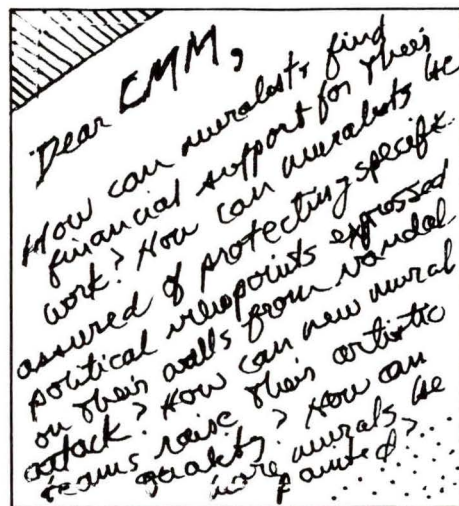 Dear CMM,
How can muralists find
financial support for their
work? How can muralists be
assured of protecting specific
political viewpoints expressed
on their walls from vandal
attack? How can new mural
teams raise their artistic
quality? How can
more murals be
painted?